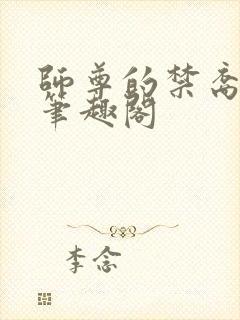 師尊的禁脔
筆趣閣
李念